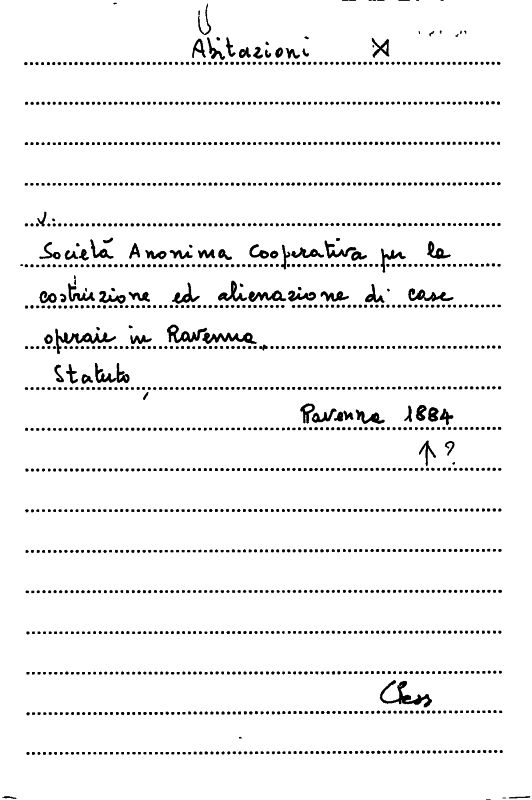 Abitazioni
v.
Società Anonima Cooperativa per la
costruzione ed alienazione di case
operaie in Ravenna.
Statuto,
Ravenna 1884
↑ ?